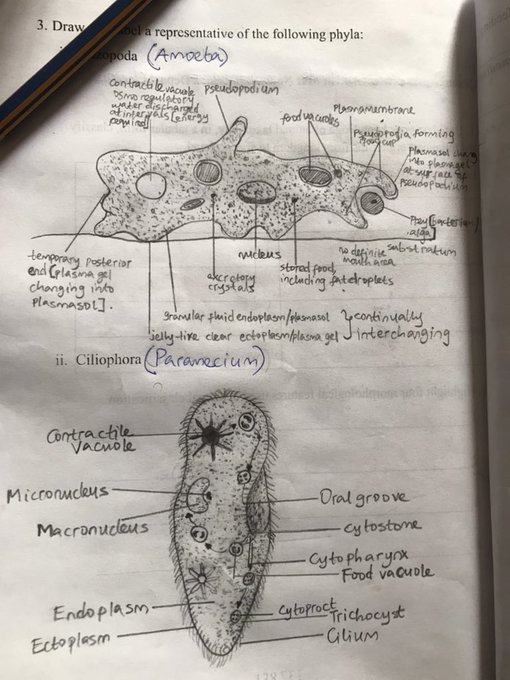 3. Draw a representative of the following phyla:
(Amoeba)
contractile vacuole
osmo regulatory
water discharged
at intervals [energy
required]
pseudopodium
food vacuoles
Plasmamembrane
Pseudopodia forming
food cup
plasmasol chang
into plasmagel
at surface of
pseudopodium
Prey [bacterium/
alga]
substratum
no definite
mouth area
nucleus
stored food,
including fat droplets
excretory
crystals
temporary posterior
end [plasma gel
changing into
plasmasol].
granular fluid endoplasm/plasmasol
jelly-like clear ectoplasm/plasma gel
continually
interchanging
ii. Ciliophora (Paramecium)
Contractile
Vacuole
Micronucleus
Macronucleus
Endoplasm
Ectoplasm
Oral groove
Cytostone
Cytopharynx
Food vacuole
Cytoproct
Trichocyst
Cilium